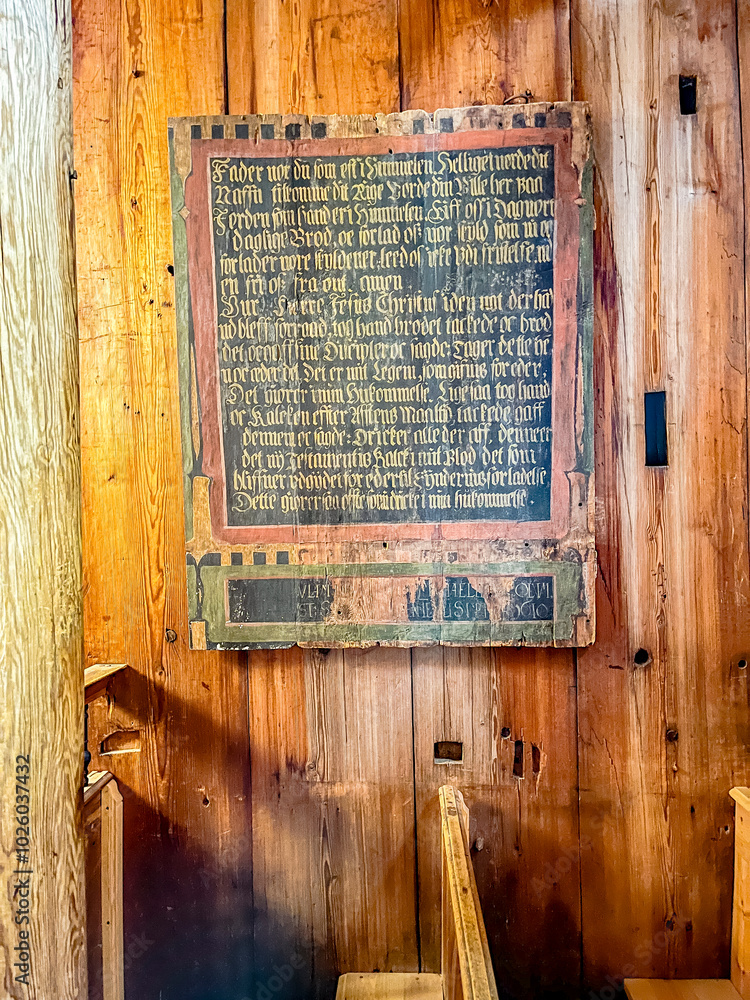 Fader vor du som est i Himmelen, Helliget vorde dit
Naffn tilkomme dit Rige Vorde din Ville her paa
Jorden som hand er i Himmelen, Giff oss i Dag vort
daglige Brod, oc forlad oss vor skyld som vi oc
forlader vore skyldener, leed oss icke vdi fristelse, m
en fri os fra ont, amen
Vor Herre Jesus Christus i den nat der ha
nd bleff forraad, tog hand brodet tackede oc brod
det, oc gaff sine Discipler oc sagde: Tager dette he
n oc æder det, det er mit Legem, som giffuis for eder,
Det giorer i min Hukommelse. Lige saa tog hand
oc Kalcken effter Afftens Maaltid, tackede gaff
dennem oc sagde: Dricker alle der aff, denne er
det ny Testamentis Kalck i mit Blod det som
bliffuer vdgydet for eder til Syndernis forladelse
Dette giorer saa offte som i dricke i min hukommelse
HELL
1610
Adobe Stock | #1026037432